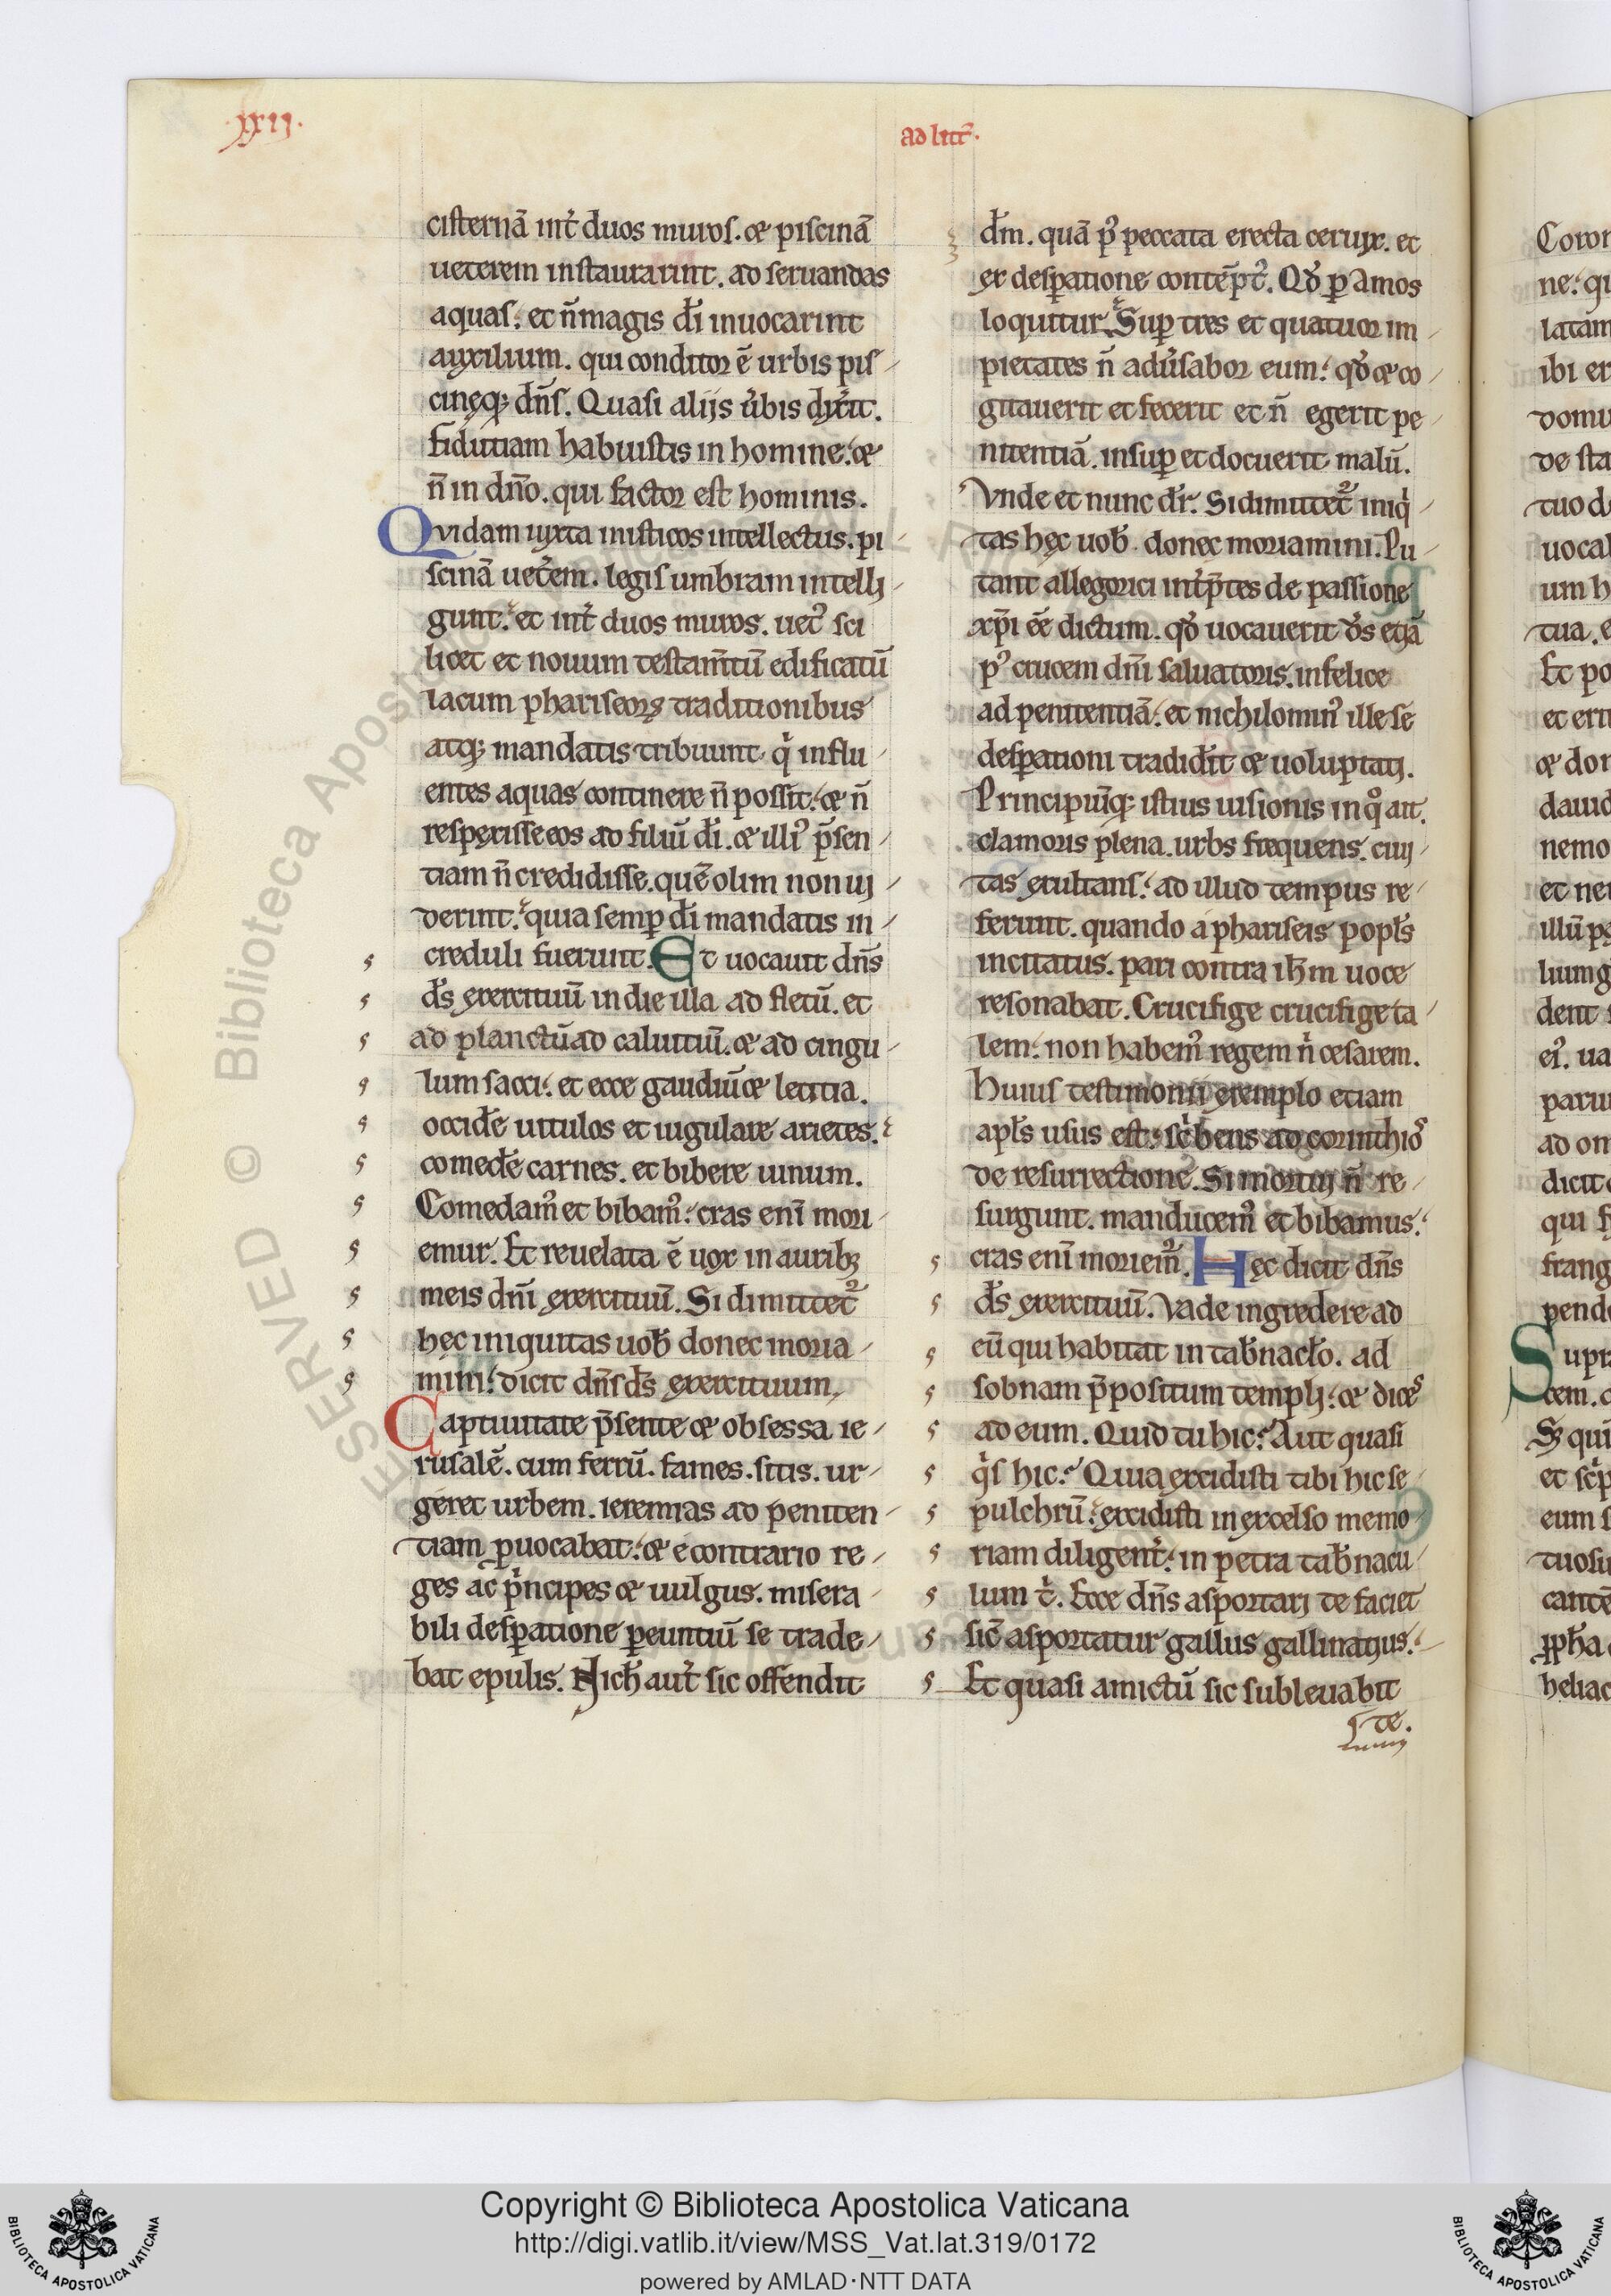 ·xxij·
ad litt̄·
cisternā int̓ duos muros. & piscinā
ueterem instaurarint. ad seruandas
aquas: et n̄ magis dī inuocarint
auxilium. qui conditor ē urbis pis
cinęq; dn̄s. Quasi alijs ủbis dix̓it.
Fidutiam habuistis in homine: &
n̄ in dn̄o. qui factor est hominis.
Qvidam iuxta misticos intellectus. pi
scinā uet̓em. legis umbram intelli
gunt: et int̓ duos muros. uet᾽ sci
licet et nouum testam̄tū edificatū
lacum phariseoꝝ traditionibus
atq; mandatis tribuunt q̇ influ
entes aquas continere n̄ possit: & n̄
respexisse eos ad filiū dī. & illi᾽ p̄sen
tiam n̄ credidisse. quē olim non ui
derint: quia semꝑ dī mandatis in
creduli fuerunt. Et uocauit dn̄s
ds̄ exercituū in die illa ad fletū. et
ad planctū ad caluitiū. & ad cingu
lum sacci: et ecce gaudiū & letitia.
occid̓e uitulos et iugulare arietes:
comed̓e carnes. et bibere uinum.
Comedam᾽ et bibam᾽: cras enī mori
emur. Et reuelata ē uox in aurib;
meis dn̄i exercituū. Si dimittet᾽
hęc iniquitas uob̄ donec moria
mini: dicit dn̄s ds̄ exercituum,
Captiuitate p̄sente & obsessa ie
rusalē. cum ferrū. fames. sitis. ur
geret urbem. ieremias ad peniten
tiam ꝓuocabat: & e contrario re
ges ac p̓ncipes & uulgus. misera
bili desꝑatione ꝑeuntiū se trade
bat epulis. Nich̄ aut̓ sic offendit
dm̄. quā p᾽ peccata erecta ceruix. et
ex desꝑatione contēpt᾽. Qđ ꝑ Amos
loquitur. Suꝑ tres et quatuor im
pietates n̄ adủsabor eum: qđ & co
gitauerit et fecerit et n̄ egerit pe
nitentiā. insuꝑ et docuerit malū.
Vnde et nunc dr̄. Si dimittet᾽ iniq̇
tas hęc uob̄. donec moriamini. Pu
tant allegorici int̓p̄tes de passione
xp̄i eē dictum. qđ uocauerit ds̄ etiā
p᾽ crucem dn̄i saluatoris. infelice
ad penitentiā: et nichilomin᾽ ille se
desꝑationi tradid̓it & uoluptati.
Principiūq; istius uisionis in q̊ ait.
clamoris plena. urbs frequens. ciui
tas exultans: ad illud tempus re
ferunt. quando a phariseis popls̄
incitatus. pari contra ih̄m uoce
resonabat. Crucifige crucifige ta
lem: non habem᾽ regem n̓ cesarem.
Huius testimonii exemplo etiam
apls̄ usus est: sc̓bens ad corinthio᾽
de resurrectione. Si mortui n̄ re
surgunt. manducem᾽ et bibamus:
cras enī moriem᾽. Hęc dicit dn̄s
ds̄ exercituū. Vade ingredere ad
eū qui habitat in tab̄nacl̄o. ad
sobnam p̄positum templi: & dices
ad eum. Quid tu hic? Aut quasi
q̇s hic? Quia excidisti tibi hic se
pulchrū: excidisti in excelso memo
riam diligent̓: in petra tab̄nacu
lum t̓. Ecce dn̄s asportari te faciet
sic̄ asportatur gallus gallinatius:
Et quasi amictū sic subleuabit
te.
Coron
ne: qu
latam
ibi er
domu
de sta
tuo d
uocal
um h
tua. e
Et po
et eri
& dor
dauid
nemo
et ne
illū pa
lium g
dent
ei᾽. ua
paru
ad on
dicit
qui f
frang
pend
Supr
cem. c
S; qui
et sc̓p
eum s
tuosu
cantē
ꝓph̄a
heliac
Copyright © Biblioteca Apostolica Vaticana
http://digi.vatlib.it/view/MSS_Vat.lat.319/0172
powered by AMLAD·NTT DATA
BIBLIOTECA APOSTOLICA VATICANA
BIBLIOTECA APOSTOLICA VATICANA